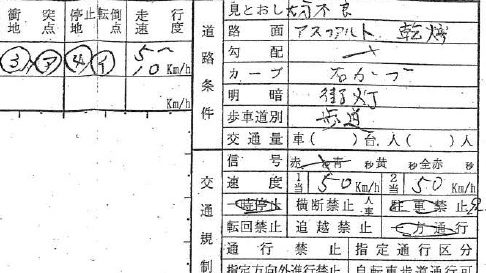 衝突地点 停止地点 転倒 走行速度
③ ㋐ ④ ㋑ 5~10 Km/h
Km/h
道路条件
見とおし 不良
路面 アスファルト 乾燥
勾配
カーブ 右カーブ
明暗 街灯
歩車道別 歩道
交通量 車( )台、人( )人
交通規制
信号 赤 青 秒黄 秒全赤 秒
速度 1当 50Km/h 2当 50Km/h
一時停止 横断禁止 人車 駐車禁止
転回禁止 追越禁止 一方通行
通行禁止 指定通行区分
指定方向外進行禁止 自転車歩道通行可